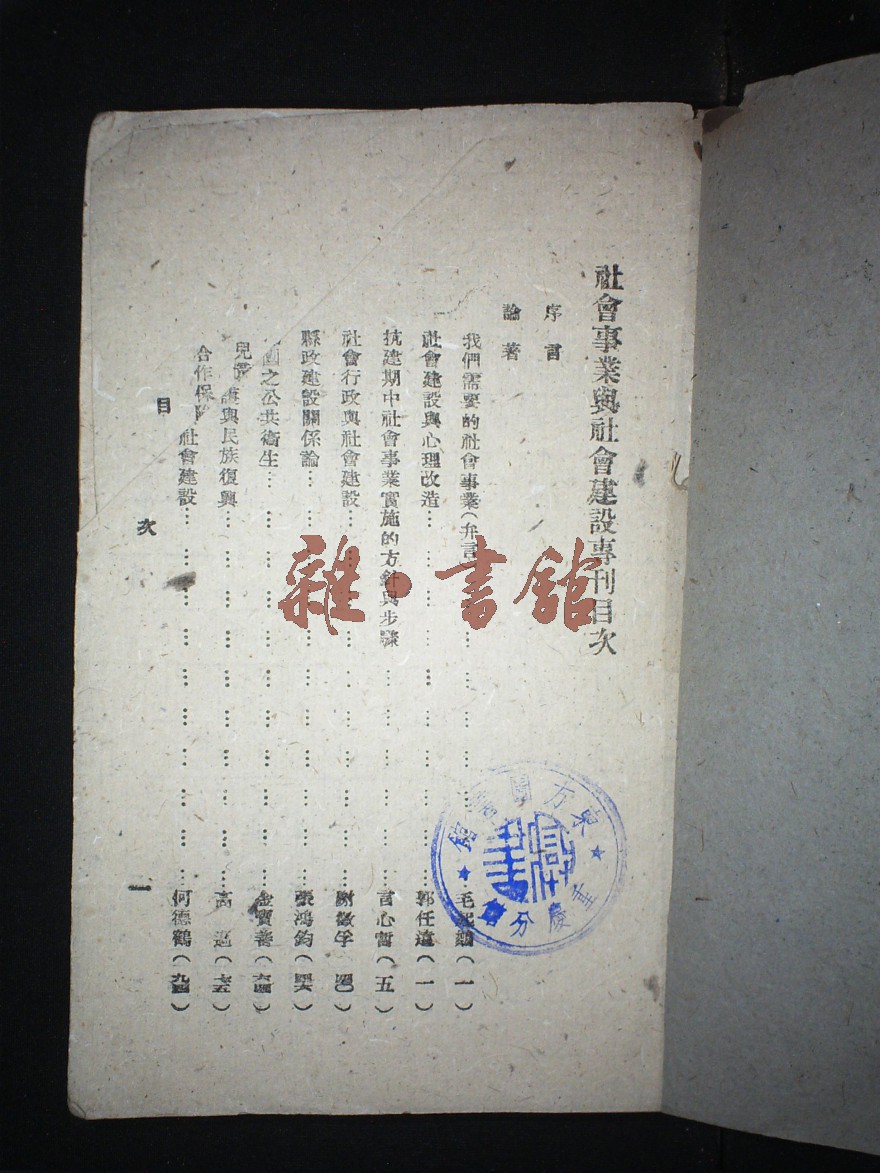 社會事業與社會建設專刊目次
序言
論著
我們需要的社會事業（弁言 … … … … 毛起鵕（一）
社會建設與心理改造 … … … … … 郭任遠（一）
抗建期中社會事業實施的方針與步驟 … … … … 言心哲（五）
社會行政與社會建設 … … … … … 謝徵孚
縣政建設關係論 … … … … … 張鴻鈞（四六）
國之公共衛生 … … … … … … 金寶善（六四）
兒 護與民族復興 … … … … … 高邁（七五）
合作保險 社會建設 … … … … … 何德鶴（九四）
目次
一
雜·書館
東方圖書館
重慶分館